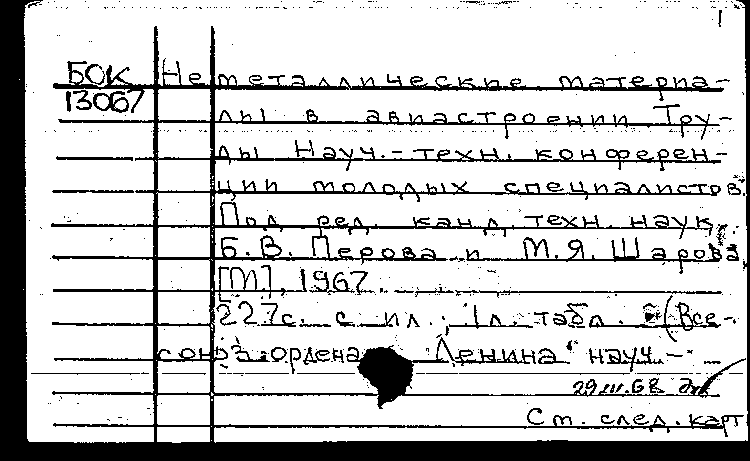 1
БОК Неметаллические материа-
13067 лы в авиастроении. Тру-
ды Науч.-техн. конферен-
ции молодых специалистов.
Под ред. канд. техн. наук
Б.В. Перова и М.Я. Шарова
[М], 1967.
227с. с ил.; 1л. табл. (Все-
союз. ордена Ленина науч.-
29.III.68
См. след. карт